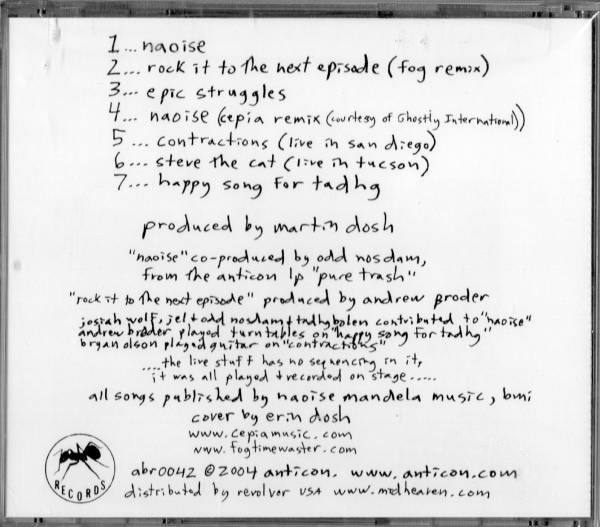 1... naoise
2... rock it to the next episode (fog remix)
3... epic struggles
4... naoise (cepia remix (courtesy of Ghostly International))
5... contractions (live in san diego)
6... steve the cat (live in tucson)
7... happy song for tadhg
produced by martin dosh
"naoise" co-produced by odd nosdam,
from the anticon lp "pure trash"
"rock it to the next episode" produced by andrew broder
josiah wolf, jel + odd nosdam + tadhg bolen contributed to "naoise"
andrew broder played turntables on "happy song for tadhg"
bryan olson played guitar on "contractions"
....the live stuff has no sequencing in it,
it was all played + recorded on stage.....
all songs published by naoise mandela music, bmi
cover by erin dosh
www.cepiamusic.com
www.fogtimewaster.com
abr0042 ©2004 anticon. www.anticon.com
distributed by revolver USA www.midheaven.com
RECORDS